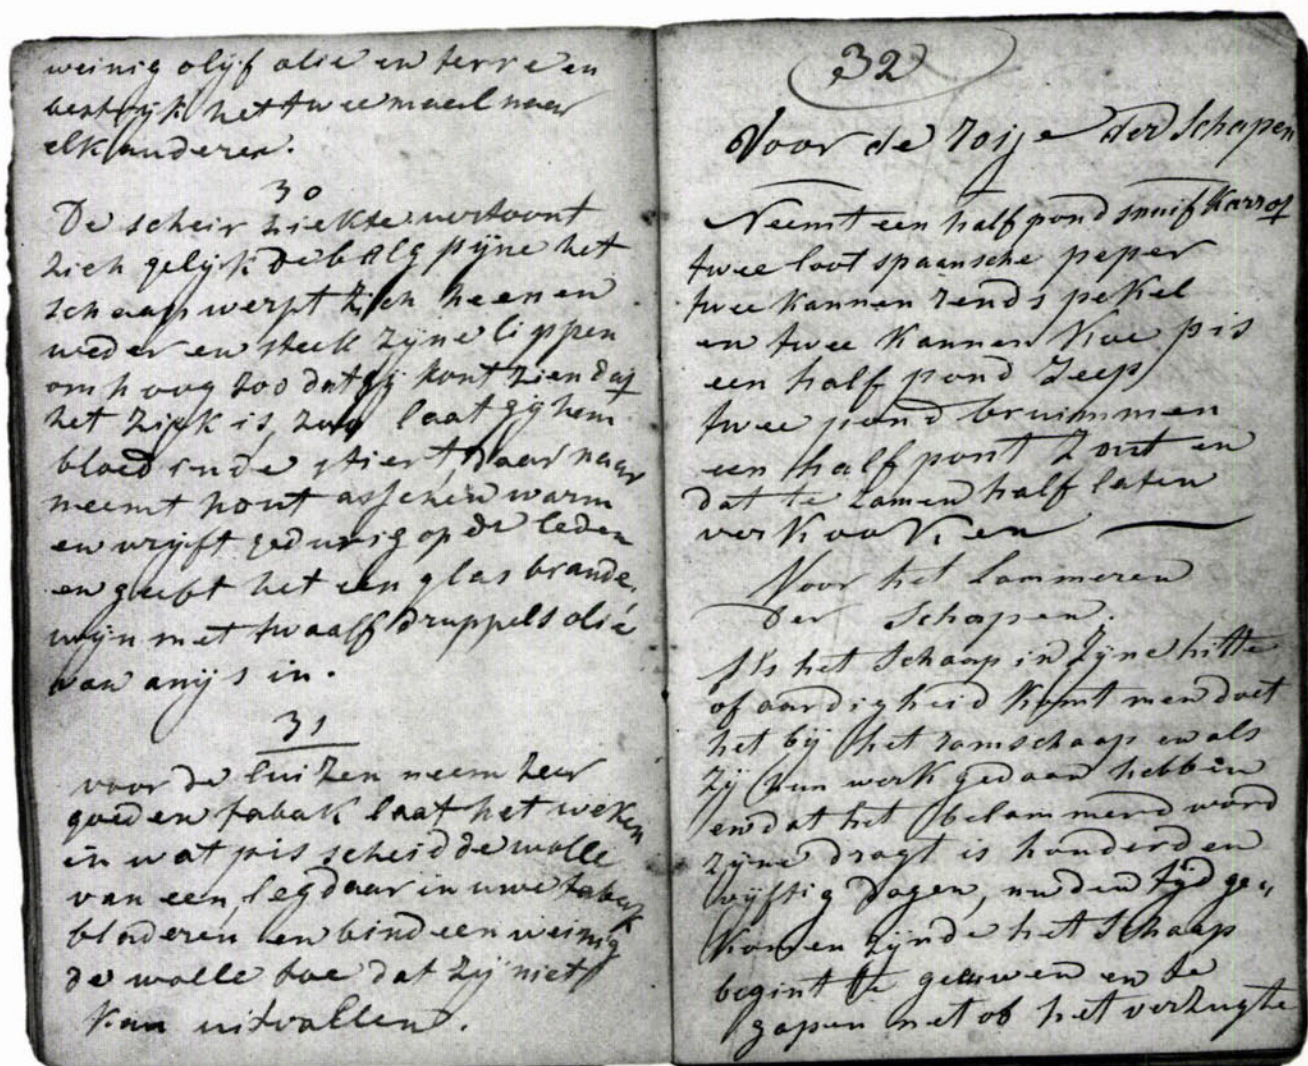 weinig olijf olie en terre en
bestrijk het twee maal naar
elk anderen.
30
De scheir ziekte vertoont
zich gelijk de balg pijne het
schaap werpt zich heen en
weder en steek zijne lippen
om hoog zoo dat gij kont zien dat
het ziek is, laat gij hem
bloed in de stiert, daar naar
neemt hout asschen warm
en wrijft gedurig op de leden
en geeft het een glas brande,
wijn met twaalf druppels olie
van anijs in.
31
voor de luizen neem zeer
goeden tabak laat het weken
in wat pis scheid de wolle
van een, leg daar in uwe tabak
bladeren en bind een weinig
de wolle toe dat zij niet
kan uitvallen.
32
Voor de roije der Schapen
Neemt een half pond snuif karrot
twee loot spaansche peper
twee kannen rends pekel
en twee kannen koe pis
een half pond Zeep
twee pond bruimmen
een half pont Zout en
dat te zamen half laten
verkooken
Voor het Lammeren
Der Schapen.
Als het Schaap in Zijne hitte
of aardigheid komt men doet
het bij het ramschaap en als
Zij hun werk gedaan hebben
en dat het belammerd word
zijne dragt is honderd en
vijftig dagen, nu den tijd ge„
komen zijnde het Schaap
begint te geeuwen en te
gapen net of het verzugte